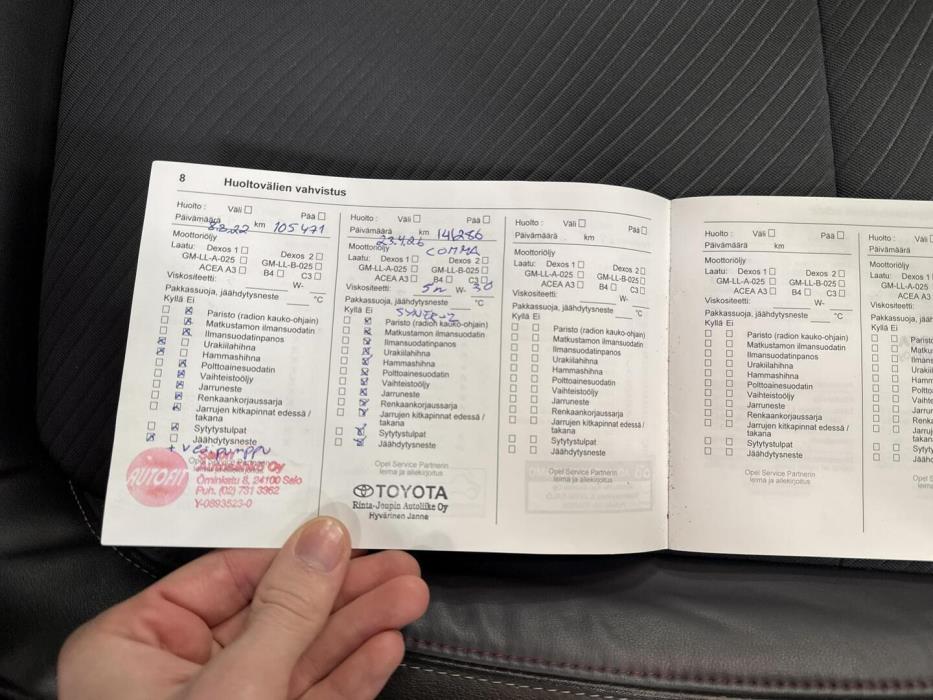 8 Huoltovälien vahvistus
Huolto : Väli Pää
Päivämäärä 8.8.22 km 105471
Moottoriöljy
Laatu: Dexos 1 Dexos 2
GM-LL-A-025 GM-LL-B-025
ACEA A3 B4 C3
Viskositeetti: W-
Pakkassuoja, jäähdytysneste °C
Kyllä Ei
Paristo (radion kauko-ohjain)
Matkustamon ilmansuodatin
Ilmansuodatinpanos
Urakiilahihna
Hammashihna
Polttoainesuodatin
Vaihteistoöljy
Jarruneste
Renkaankorjaussarja
Jarrujen kitkapinnat edessä /
takana
Sytytystulpat
Jäähdytysneste
+ vesipumppu
AUTOFIT
Oy
Ominkatu 8, 24100 Salo
Puh. (02) 731 3362
Y-0893523-0
Huolto : Väli Pää
Päivämäärä 23.4.26 km 141286
Moottoriöljy COMMA
Laatu: Dexos 1 Dexos 2
GM-LL-A-025 GM-LL-B-025
ACEA A3 B4 C3
Viskositeetti: 5 W- 30
Pakkassuoja, jäähdytysneste °C
Kyllä Ei
Paristo (radion kauko-ohjain)
Matkustamon ilmansuodatin
Ilmansuodatinpanos
Urakiilahihna
Hammashihna
Polttoainesuodatin
Vaihteistoöljy
Jarruneste
Renkaankorjaussarja
Jarrujen kitkapinnat edessä /
takana
Sytytystulpat
Jäähdytysneste
Opel Service Partnerin
leima ja allekirjoitus
TOYOTA
Rinta-Joupin Autoliike Oy
Hyvärinen Janne
Huolto : Väli Pää
Päivämäärä km
Moottoriöljy
Laatu: Dexos 1 Dexos 2
GM-LL-A-025 GM-LL-B-025
ACEA A3 B4 C3
Viskositeetti: W-
Pakkassuoja, jäähdytysneste °C
Kyllä Ei
Paristo (radion kauko-ohjain)
Matkustamon ilmansuodatin
Ilmansuodatinpanos
Urakiilahihna
Hammashihna
Polttoainesuodatin
Vaihteistoöljy
Jarruneste
Renkaankorjaussarja
Jarrujen kitkapinnat edessä /
takana
Sytytystulpat
Jäähdytysneste
Opel Service Partnerin
leima ja allekirjoitus
Huolto : Väli Pää
Päivämäärä km
Moottoriöljy
Laatu: Dexos 1 Dexos 2
GM-LL-A-025 GM-LL-B-025
ACEA A3 B4 C3
Viskositeetti: W-
Pakkassuoja, jäähdytysneste °C
Kyllä Ei
Paristo (radion kauko-ohjain)
Matkustamon ilmansuodatin
Ilmansuodatinpanos
Urakiilahihna
Hammashihna
Polttoainesuodatin
Vaihteistoöljy
Jarruneste
Renkaankorjaussarja
Jarrujen kitkapinnat edessä /
takana
Sytytystulpat
Jäähdytysneste
Opel Service Partnerin
leima ja allekirjoitus
Huolto : Väli
Päivämäärä
Moottoriöljy
Laatu: Dexos 1
GM-LL-A-025
ACEA A3
Viskositeetti:
Kyllä Ei